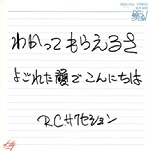 わかってもらえるさ
よごれた顔でこんにちは
R.C.サクセション